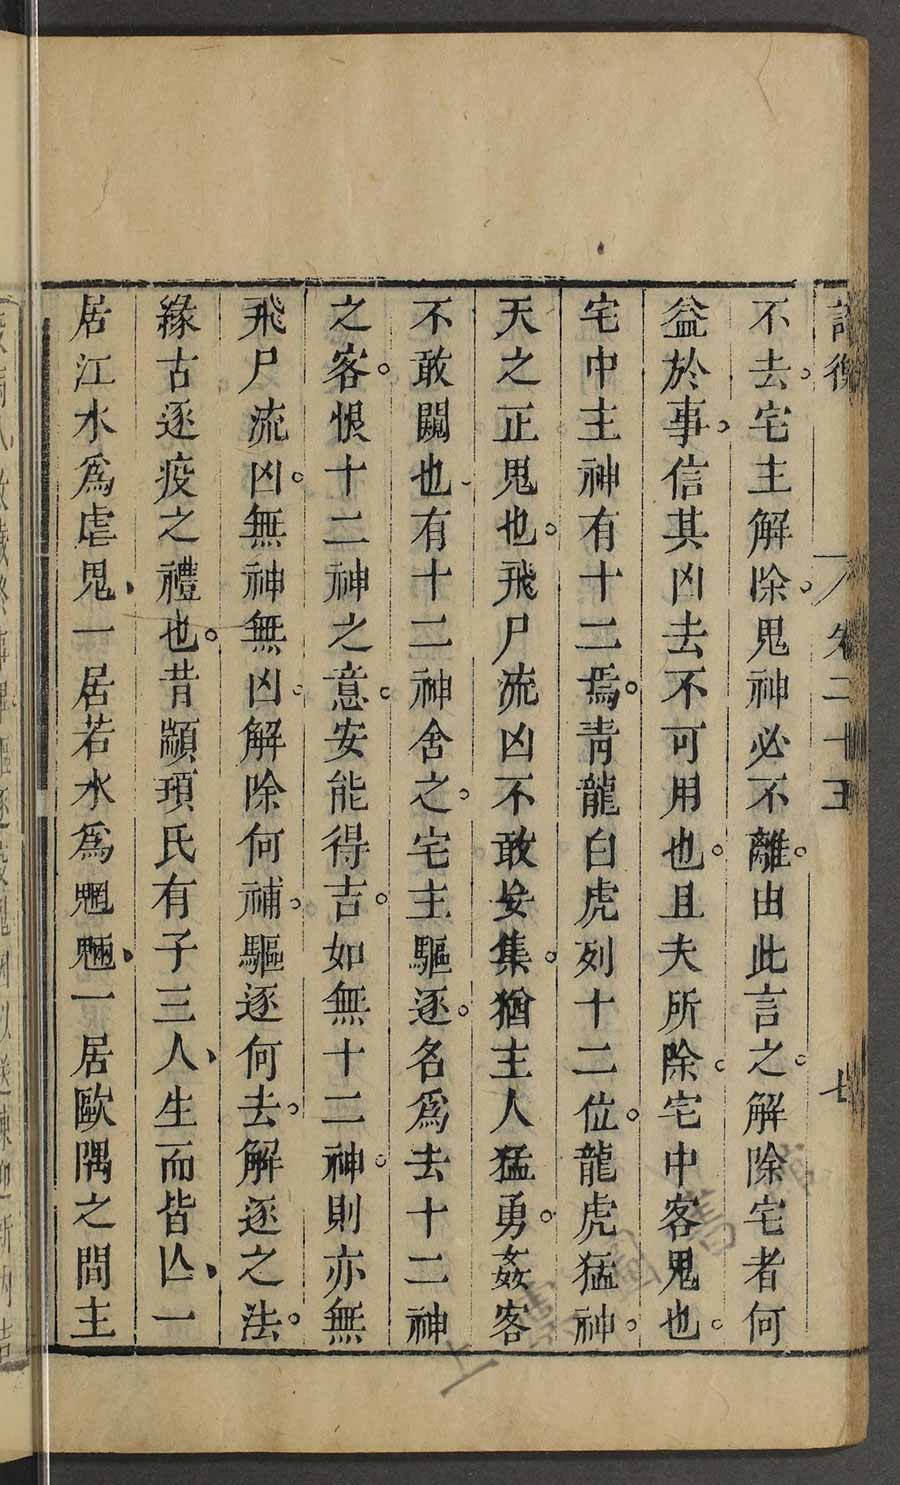 論衡 卷二十五 七
不去。宅主解除。鬼神必不離。由此言之。解除宅者何
益於事。信其凶去不可用也。且夫所除。宅中客鬼也。
宅中主神有十二焉。青龍白虎列十二位。龍虎猛神。
天之正鬼也。飛尸流凶不敢妄集。猶主人猛勇。姦客
不敢闚也。有十二神舍之。宅主驅逐。名爲去十二神
之客。恨十二神之意。安能得吉。如無十二神。則亦無
飛尸流凶。無神無凶。解除何補。驅逐何去。解逐之法。
緣古逐疫之禮也。昔顓頊氏有子三人、生而皆亾、一
居江水爲虐鬼、一居若水爲魍魎、一居歐隅之間主